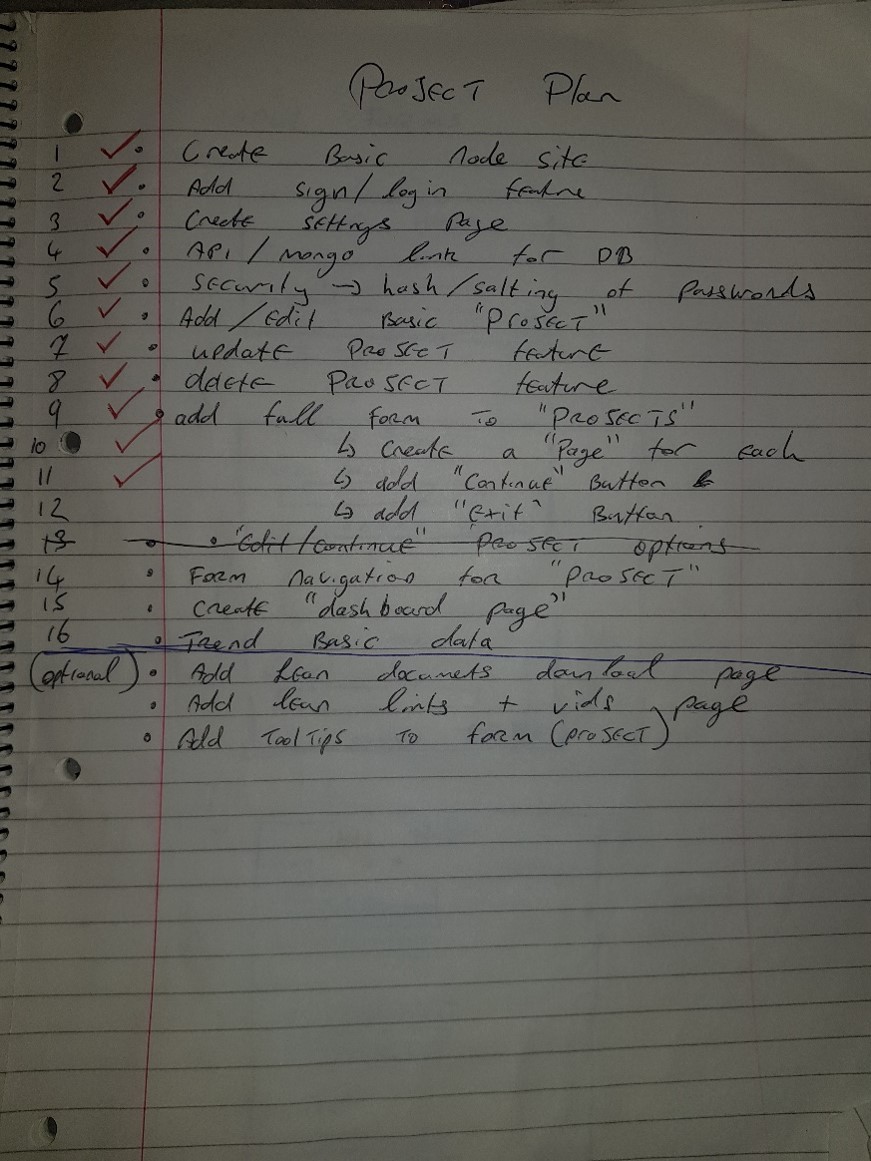 Project Plan
1 ✓ • Create Basic Node site
2 ✓ • Add sign/login feature
3 ✓ • Create settings page
4 ✓ • API/mongo link for DB
5 ✓ • Security → hash/salting of passwords
6 ✓ • Add/Edit Basic "Project"
7 ✓ • update Project feature
8 ✓ • delete Project feature
9 ✓ • add full form to "Projects"
10 ✓ ↳ Create a "Page" for each
11 ✓ ↳ add "Continue" Button &
12 ↳ add "Exit" Button
13 • • "Edit/continue" Project options
14 • Form navigation for "Project"
15 • Create "dashboard page"
16 • Trend Basic data
(optional) • Add lean documets download page
• Add lean links + vids page
• Add ToolTips to form (project)